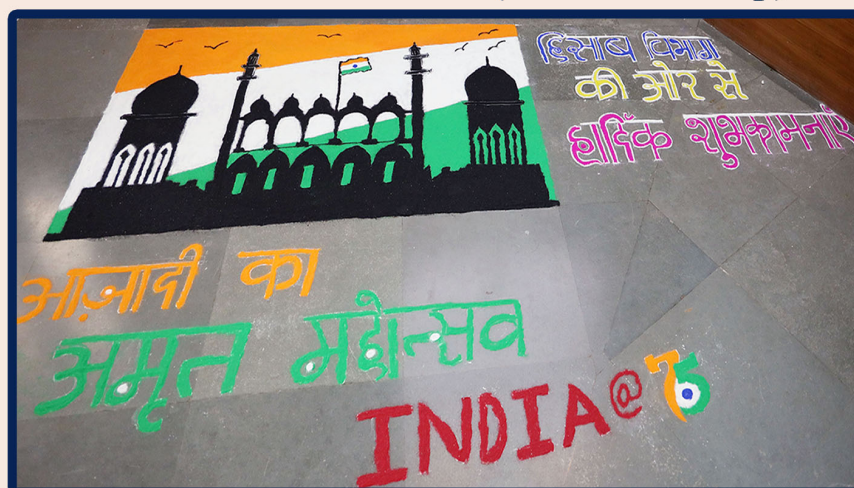 हिसाब विभाग
की ओर से
हार्दिक शुभकामनाएँ
आज़ादी का
अमृत महोत्सव
INDIA@75